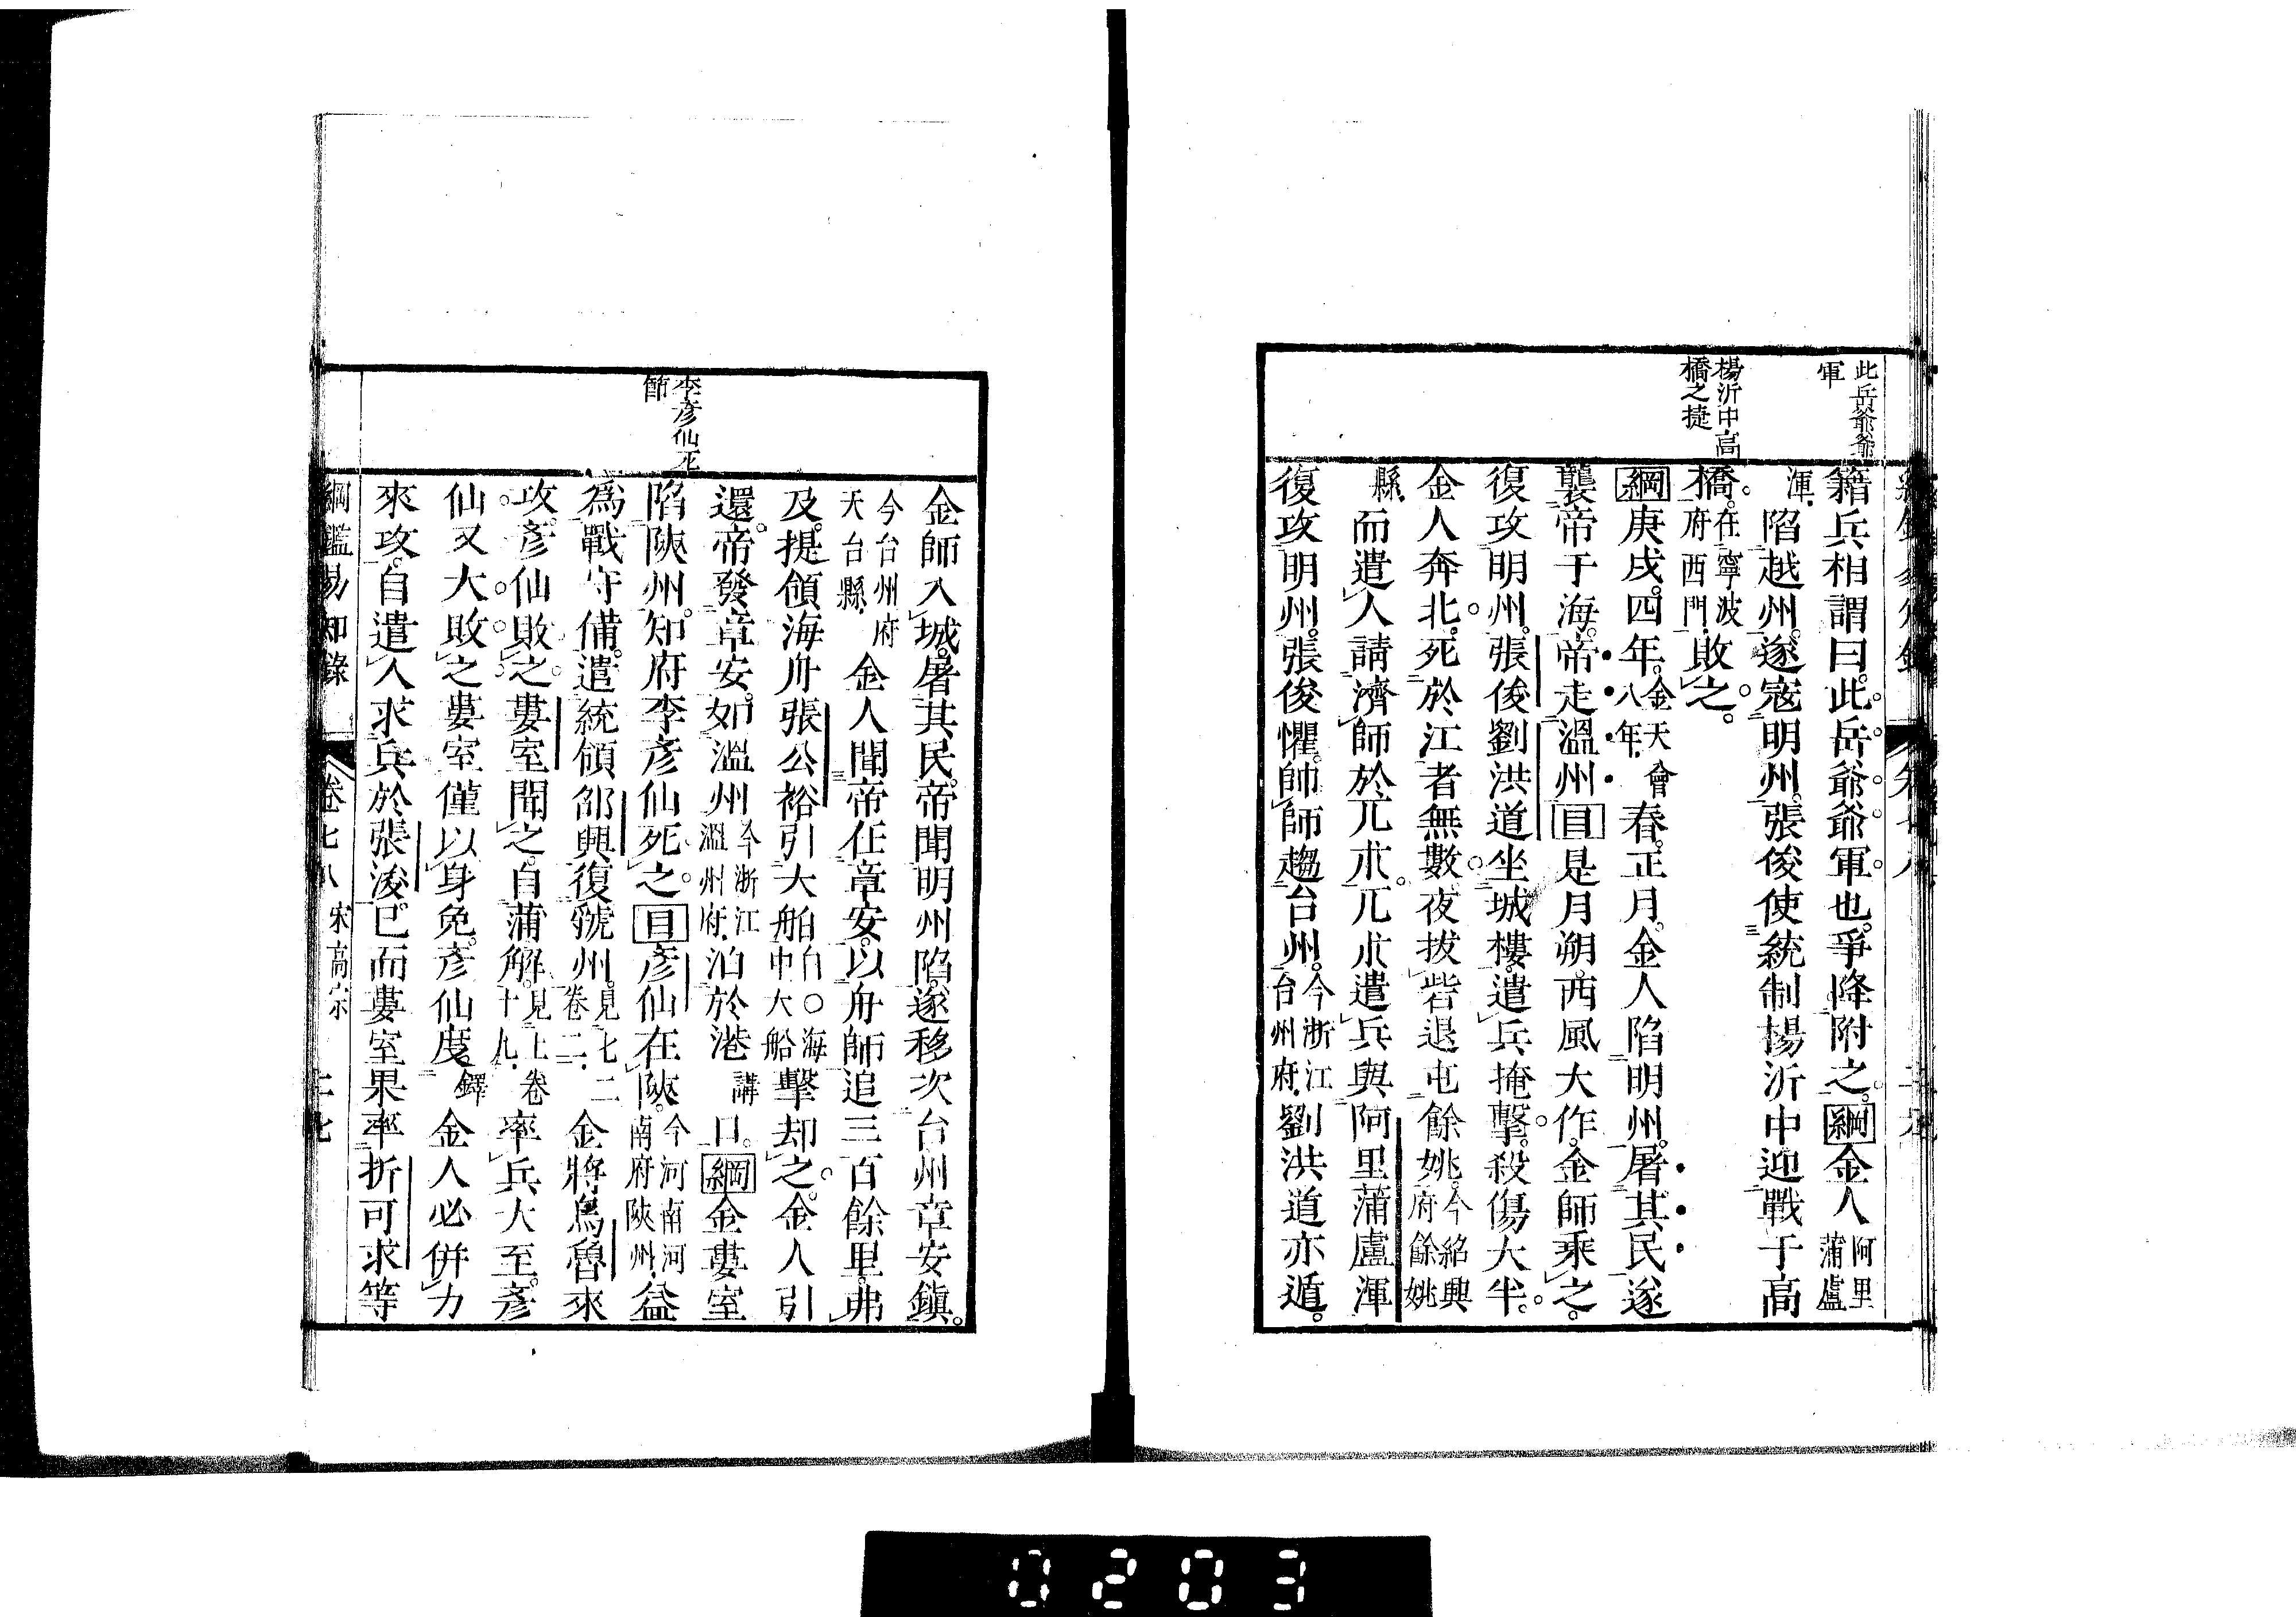 此岳爺爺
軍
楊沂中高
橋之捷
籍兵相謂曰此岳爺爺軍也爭降附之綱金人阿里蒲盧
渾陷越州遂寇明州張俊使統制楊沂中迎戰于高
橋在寧波府西門敗之
綱庚戌四年金天會八年春正月金人陷明州屠其民遂
襲帝于海帝走溫州目是月朔西風大作金師乘之
復攻明州張俊劉洪道坐城樓遣兵掩擊殺傷大半
金人奔北死於江者無數夜拔砦退屯餘姚今紹興府餘姚
縣而遣人請濟師於兀朮兀朮遣兵與阿里蒲盧渾
復攻明州張俊懼帥師趨台州今浙江台州府劉洪道亦遁
李彥仙死
節
金師入城屠其民帝聞明州陷遂移次台州章安鎮
今台州府天台縣金人聞帝在章安以舟師追三百餘里弗
及提領海舟張公裕引大舶白○海中大船擊却之金人引
還帝發章安如溫州今浙江溫州府泊於港講口綱金婁室
陷陝州知府李彥仙死之目彥仙在陝今河南河南府陝州益
爲戰守備遣統領邵興復虢州見七二卷二金將烏魯來
攻彥仙敗之婁室聞之自蒲解見上卷十九率兵大至彥
仙又大敗之婁室僅以身免彥仙度鐸金人必併力
來攻自遣人求兵於張浚已而婁室果率折可求等
綱鑑易知錄 卷七八 宋高宗
0203